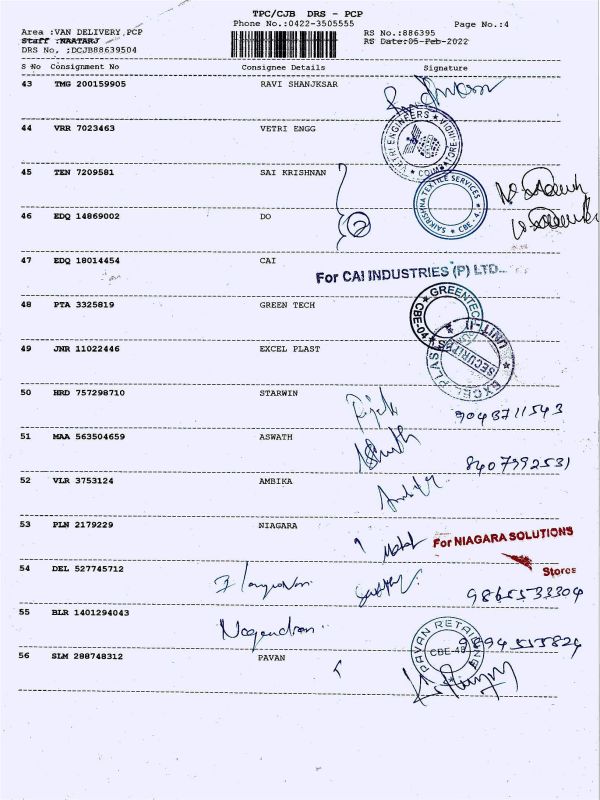 TPC/CJB DRS - PCP
Phone No.:0422-3505555
Page No.:4
Area :VAN DELIVERY,PCP
RS No.:886395
Staff :NAATARJ
RS Date:05-Feb-2022
DRS No, :DCJB88639504
S No Consignment No Consignee Details Signature
43 TMG 200159905 RAVI SHANJKSAR
44 VRR 7023463 VETRI ENGG
VETRI ENGINEERS COIMBATORE
45 TEN 7209581 SAI KRISHNAN
SAIKRISHNA TEXTILE SERVICES CBE - 4
46 EDQ 14869002 DO
2
47 EDQ 18014454 CAI
For CAI INDUSTRIES (P) LTD..
48 PTA 3325819 GREEN TECH
GREENTECH CBE-04
49 JNR 11022446 EXCEL PLAST
EXCEL PLAST UNIT-II SECURITY
50 HRD 757298710 STARWIN
9043711543
51 MAA 563504659 ASWATH
8407992531
52 VLR 3753124 AMBIKA
53 PLN 2179229 NIAGARA
For NIAGARA SOLUTIONS
Stores
54 DEL 527745712
9865533304
55 BLR 1401294043 Nagendran
PAVAN RETAIL CBE-48
56 SLM 288748312 PAVAN